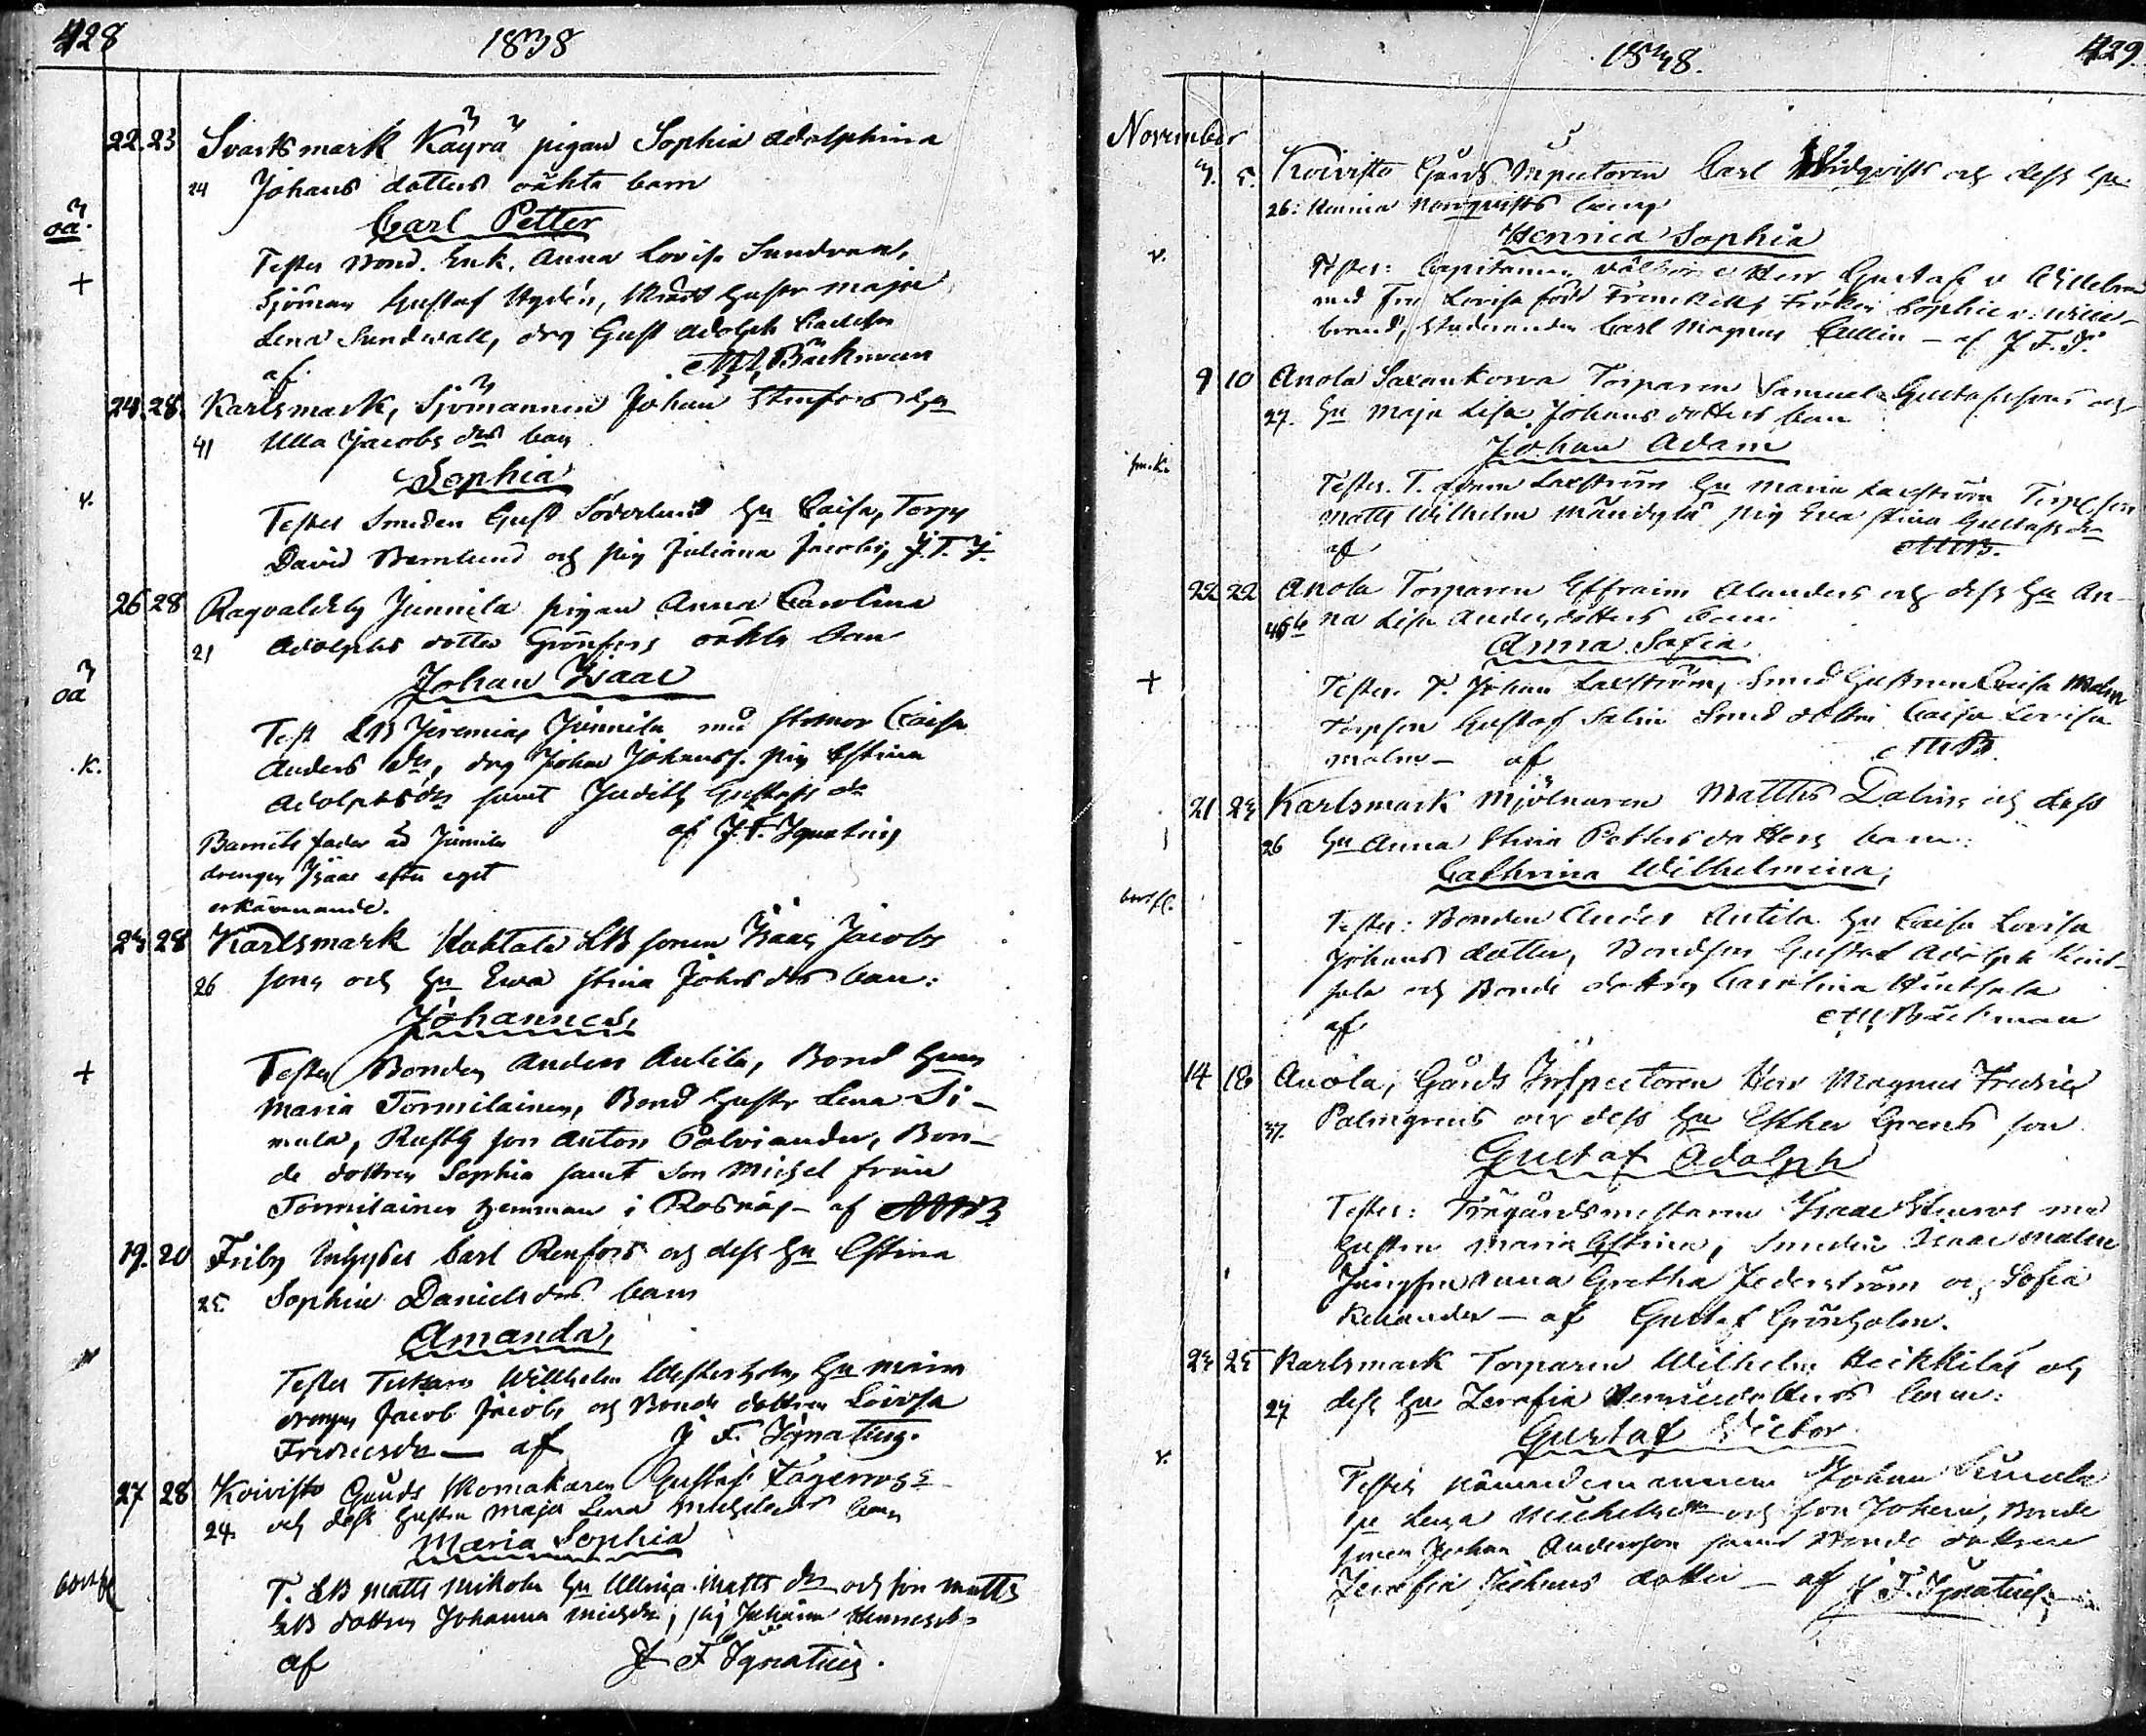 428
1838
22. 23 Svartsmark Käyrä pigan Sophia Adolphina
24 Johans dotters oäkta barn
oä. Carl Petter
Testes Bond. Enk. Anna Lovisa Sundvall,
+ Sjöman Gustaf Nydén, Hustr Maja
Lena Sundwall, drg Gust Adolph
af Bäckman
24. 28. Karlsmark, Sjömannen Johan Stenfors Hu
41 Ulla Jacobs drs barn
Sophia
v. Testes Smeden Gust Söderlund Hu Caisa, Torp
David Bernlund och pig Juliana Jacobs, J. F. I.
26 28 Ragvaldsby Junnila pigan Anna Carolina
21 Adolphs dotter Grönfors oäkta barn
oä Johan Isaac
Test LB Jeremias Junnila med Caisa
.k. Anders dr, drg Johan Johanss. pig Stina
Adolphs dr samt Judith Gustafs dr
Barnets fader är Junnila af J. F. Ignatius
drengen Isaac efter eget
erkännande.
24 28 Karlsmark LB sonen Isaac Jacobs
26 sons och Hu Ewa Stina Johs drs barn:
Johannes,
+ Testes Bonden Anders Antila, Bond Hustr
Maria Tormilainen, Bond Hustr Lena Si-
mula, Rusth son Anton Palviander, Bon-
de dottren Sophia samt son Michel från
Tormilainen hemman i Rosnäs - af MB
19. 20 Friby Inhyses Carl Renfors och dess Hu Stina
25 Sophia Daniels drs barn
Amanda,
Testes Willhelm Westerholm, Hu
drengen Jacob Jacobs och Bonde dottren Lovisa
Fredricsdr — af J. F. Ignatius.
27 28 Koivisto Gårds Gustaf Lagerroos
24. och dess Hustru Maja Lena Michelsdrs barn
Maria Sophia
T. LB Matts Mikola Hu Ulrica Matts dr och son Matts
LB dottren Johanna Michsdr, pig
af J F Ignatius.
1838.
429.
November
3. 5. Koivisto Gårds Inspectoren Carl Widqvists och dess Hu
26: Norrqvists barn
Henrica Sophia
v. Testes: Capitainen Herr Gustaf v Willebrand
med Fru Lovisa född Frenckell, Fröken Sophie v: Wille-
brand, Studeranden Carl Magnus Cullin — af J. F. I.
9 10 Anola Saxankorva Torparen Samuel Gustafssons och
27. Hu Maja Lisa Johans dotters barn
Johan Adam
Testes. T. Laxström Hu Maria Laxström Torps son
Matts Wilhelm pig Eva Stina Gustafs dr
af MB.
22 22 Anola Torparen Effraim Alanders och dess Hu An-
na Lisa Anders dotters barn
Anna Sofia
+ Testes. T. Johan Laxström, Smed Hustrun Caisa Malm
Torpson Gustaf Salin Smed dottren Caisa Lovisa
Malm — af MB.
21 24 Karlsmark Mjölnaren Matths Dalins och dess
26 Hu Anna Stina Petters dotters barn:
Cathrina Wilhelmina,
Testes: Bonden Anders Antila Hu Caisa Lovisa
Johans dotter, Bondson Gustaf Adolph Hint-
sala och Bonde dottren Carolina Hintsala
af Bäckman
14 18 Anola, Gårds Inspectoren Herr Magnus Fredric
37. Palmgrens och dess Hu Esther Grens son
Gustaf Adolph
Testes: Trägårdsmästaren Isaac med
Hustrun Maria Stina, Smeden Isaac Malm
Jungfru Anna Gretha Federström och Sofia
— af Gustaf Grönholm.
24 25 Karlsmark Torparen Wilhelm Heikkiläs och
27 dess Hu Serafia Henricsdotters barn:
Gustaf Victor
v. Testes Nämndemannen Johan Simula
Michelsdr och son Johan, Bonde
sonen Johan Andersson samt Bonde dottren
Serafia Johans dotter — af J F. Ignatius